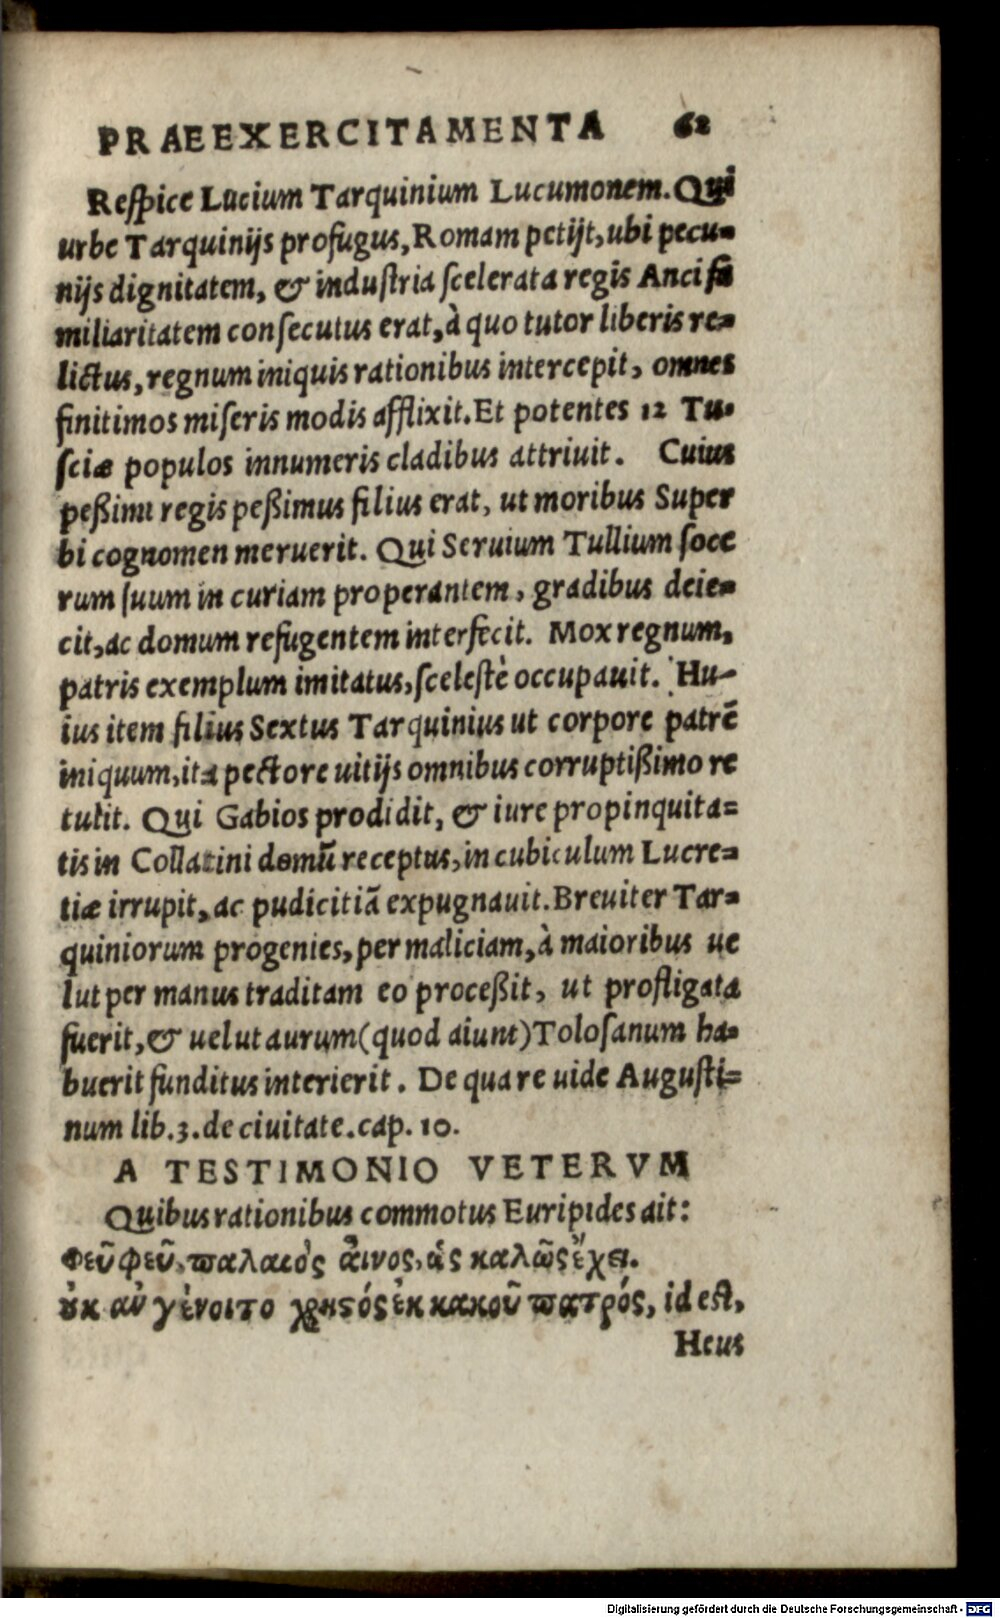 PRAEEXERCITAMENTA 62
Respice Lucium Tarquinium Lucumonem. Qui
urbe Tarquinijs profugus, Romam petijt, ubi pecu-
nijs dignitatem, & industria scelerata regis Anci fa
miliaritatem consecutus erat, à quo tutor liberis re-
lictus, regnum iniquis rationibus intercepit, omnes
finitimos miseris modis afflixit. Et potentes 12 Tu-
sciæ populos innumeris cladibus attriuit. Cuius
peßimi regis peßimus filius erat, ut moribus Super
bi cognomen meruerit. Qui Seruium Tullium soce
rum suum in curiam properantem, gradibus deie-
cit, ac domum refugentem interfecit. Mox regnum,
patris exemplum imitatus, scelestè occupauit. Hu-
ius item filius Sextus Tarquinius ut corpore patrē
iniquum, ita pectore uitijs omnibus corruptißimo re
tulit. Qui Gabios prodidit, & iure propinquita-
tis in Collatini domū receptus, in cubiculum Lucre-
tiæ irrupit, ac pudicitiā expugnauit. Breuiter Tar-
quiniorum progenies, per maliciam, à maioribus ue
lut per manus traditam eo proceßit, ut profligata
fuerit, & uelut aurum (quod aiunt) Tolosanum ha-
buerit funditus interierit. De qua re uide Augusti-
num lib. 3. de ciuitate. cap. 10.
A TESTIMONIO VETERVM
Quibus rationibus commotus Euripides ait:
Φεῦ φεῦ, παλαιὸς ἆινος, ὡς καλῶς ἔχει.
ȣκ αν γένοιτο χρηστός ἐκ κακοῦ πατρός, id est,
Heus
Digitalisierung gefördert durch die Deutsche Forschungsgemeinschaft - DFG